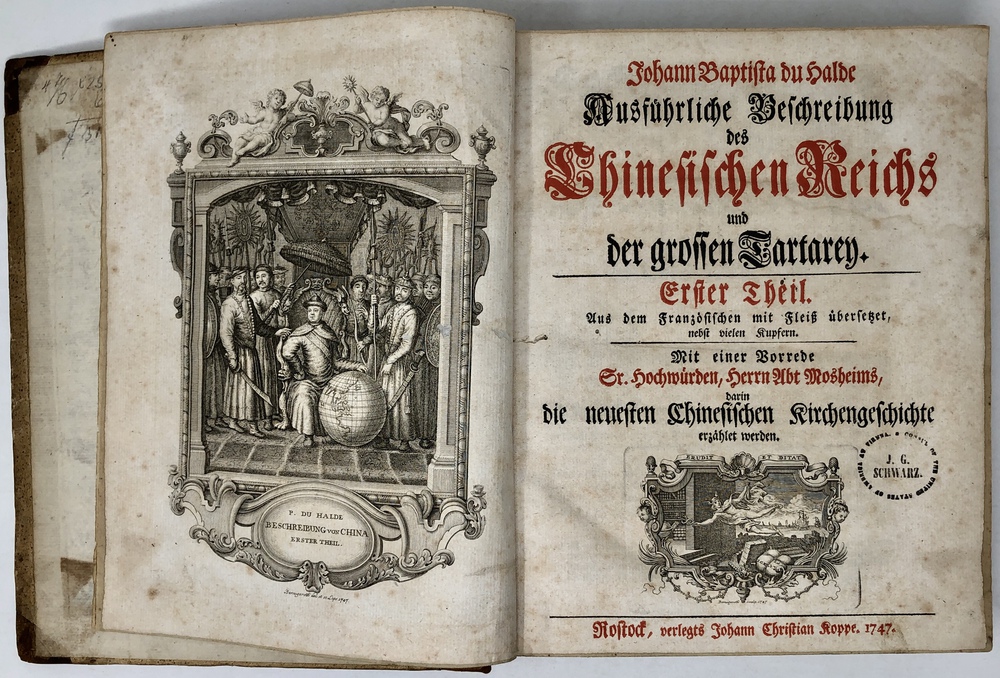 P. DU HALDE
BESCHREIBUNG VON CHINA
ERSTER THEIL.
Johann Baptista du Halde
Ausführliche Beschreibung
des
Chinesischen Reichs
und
der grossen Tartarey.
Erster Theil.
Aus dem Französischen mit Fleiß übersetzet,
nebst vielen Kupfern.
Mit einer Vorrede
Sr. Hochwürden, Herrn Abt Mosheims,
darin
die neuesten Chinesischen Kirchengeschichte
erzählet werden.
J. G.
SCHWARZ.
CONSUL OF THE UNITED STATES AT VIENNA.
ERUDIT ET DITAT
Rostock, verlegts Johann Christian Koppe. 1747.